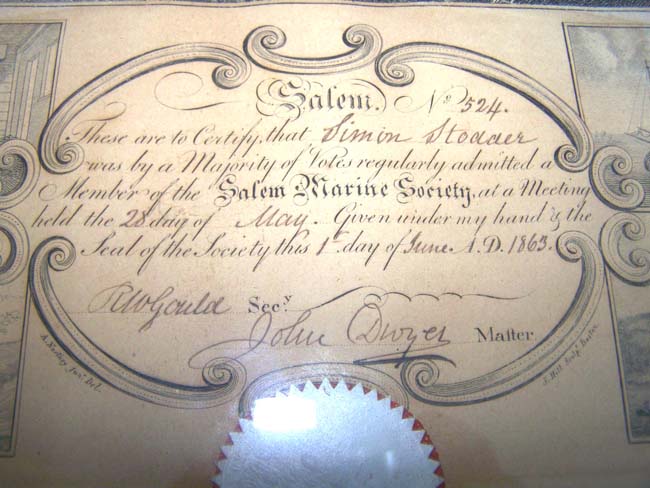 Salem. No. 524.
These are to Certify, that Simon Stodder
was by a Majority of Votes regularly admitted a
Member of the Salem Marine Society, at a Meeting
held the 28 day of May. Given under my hand & the
Seal of the Society this 1st day of June A.D. 1863.
RWGould Secy.
John Dwyer Master
A. Junr Del.
S. Hill Sculp. Boston